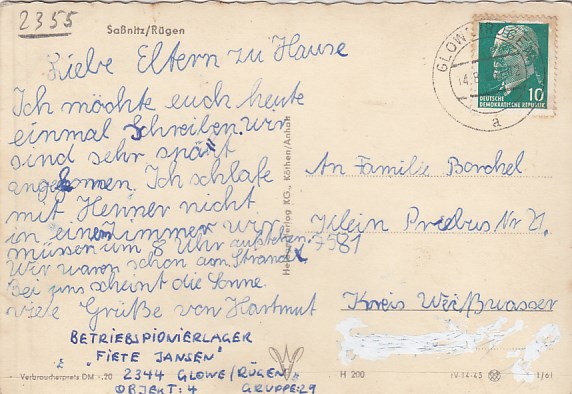 2355
Saßnitz/Rügen
Liebe Eltern zu Hause
Ich möchte euch heute
einmal Schreiben. Wir
sind sehr spät
angekommen. Ich schlafe
mit Henner nicht
in einem Zimmer wir
müssen um 8 Uhr aufstehen.
Wir waren schon am Strand
bei uns scheint die Sonne
viele Grüße von Hartmut
BETRIEBSPIONIERLAGER
"FIETE JANSEN"
2344 GLOWE/RÜGEN
OBJEKT: 4 GRUPPE: 29
Verbraucherpreis DM -,20
KG., Köthen/Anhalt
GLOWE
14.8
a
10
DEUTSCHE
DEMOKRATISCHE REPUBLIK
An Familie Borchel
Klein Priebus Nr 21
7581
Kreis Weißwasser
H 200
IV-14-45
1/61